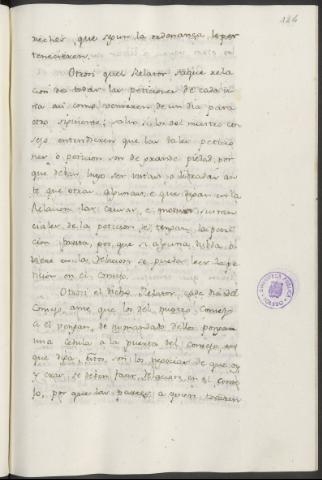 124
rechos, que segun la ordenança le per
tenecieren.
Otrosi quel Relator saque rela
cion de todas las peticiones de cada di
a asi como vinieren de un dia para
otro siguiente; salvo si los del nuestro con
sejo entendieren que las tales peticio
nes o peticion son de grande piedad, por
que deban luego ser vistas o libradas an
te que otras algunas, e que digan en la
Relacion las causas, e motivos sustan
ciales de la peticion, e tengan la peti
cion junta, por que si alguna dubda o
biere en la Relacion se pueda leer la pe
ticion en el Consejo.
Otrosi el dicho Relator, cada dia del
Consejo, ante que los del nuestro Consejo
a el vengan, de su mandado dellos pongan
una cedula a la puerta del Consejo, en
que diga, estos son los negocios de que oy
y cras se deben fazer Relacion en el Conse
jo, por que las partes a quien tocaren